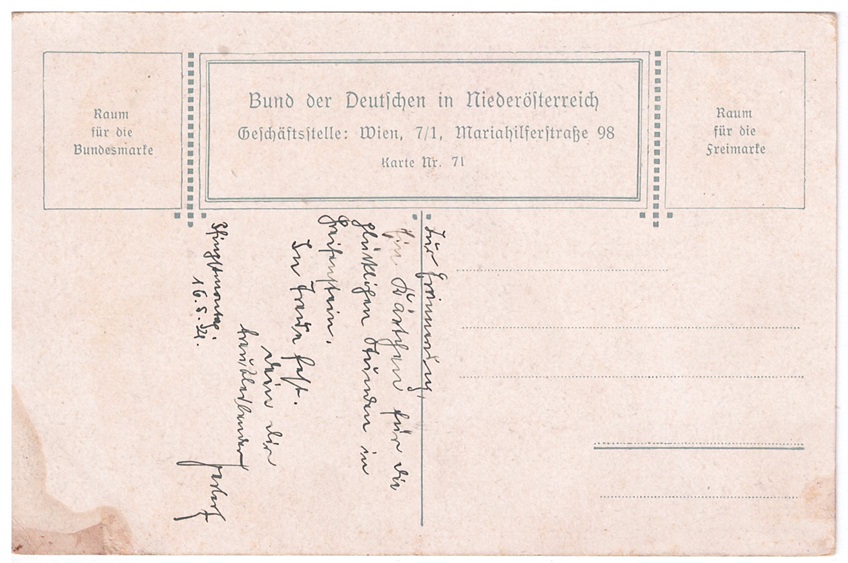 Raum
für die
Bundesmarke
Bund der Deutschen in Niederösterreich
Geschäftsstelle: Wien, 7/1, Mariahilferstraße 98
Karte Nr. 71
Raum
für die
Freimarke
Zur Erinnerung,
Ein Kärtchen für die
glücklichen Stunden in
Greifenstein.
In Treue fest.
Dein Dir
Pfingstmontag,
16. 5. 21.